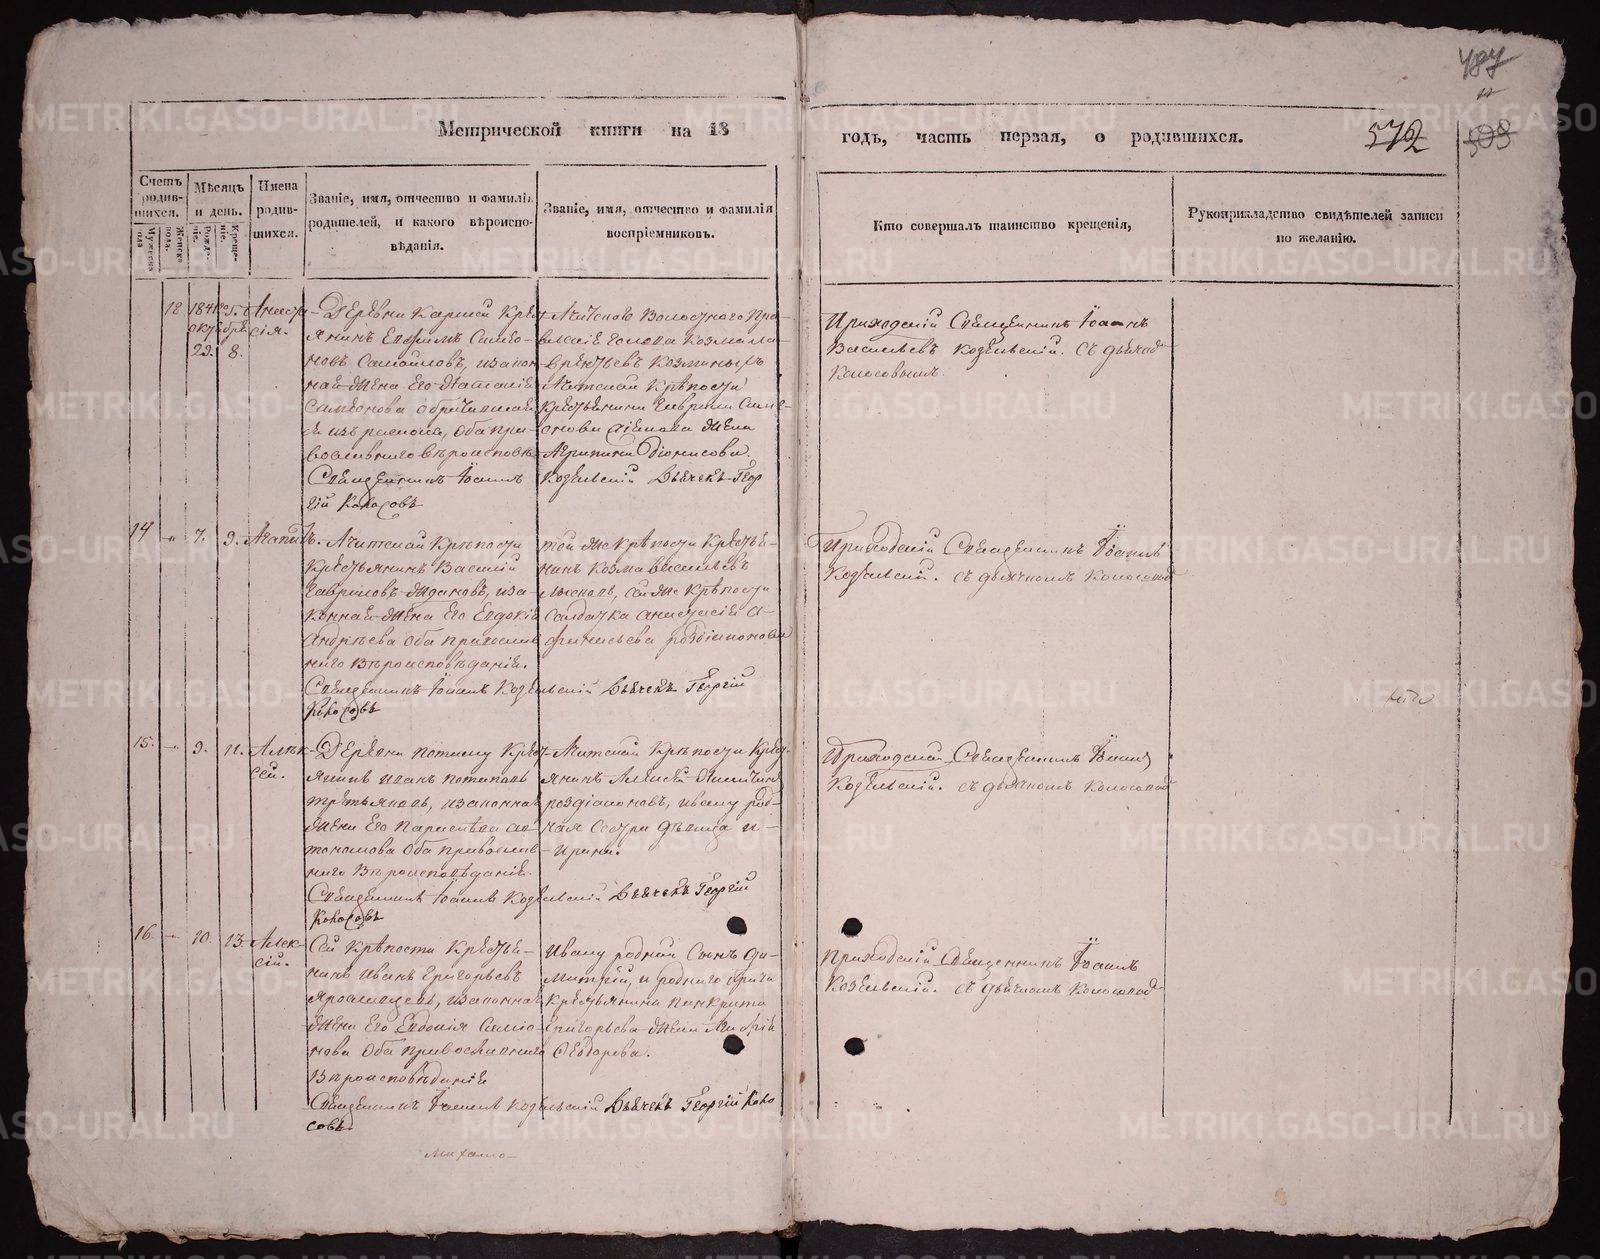 487
Метрической книги на 18
годъ, часть первая, о родившихся.
572
503
Счетъ родившихся.
Мужеска пола
Женска пола.
Мѣсяцъ и день.
Рожденіе.
Крещеніе.
Имена родившихся.
Званіе, имя, отчество и фамилія
родителей, и какого вѣроиспо-
вѣданія.
Званіе, имя, отчество и фамилія
воспріемниковъ.
Кто совершалъ таинство крещенія,
Рукоприкладство свидѣтелей записи
по желанію.
12
Октября
29. 8.
Анаста-
сія.
Деревни Каргиси Крес
янинъ Ефимъ Симео-
новъ Самойловъ, и закон
ная жена его Наталія
Симеонова обратившая
ся изъ раскола, оба пра-
вославнаго вѣроисповѣ
Священникъ Іоаннъ
гій Колосовъ
Ачитскаго Волостнаго Пра-
вленія голова Козма Ла-
врентьевъ Козминыхъ
Ачитской Крѣпости
Крестьянина Гаврилы Симе-
онова жена
Агрипина Діонисова.
Козельскій Дьячекъ Геор
Приходскій Священникъ Іоаннъ
Васильевъ Козельскій. Съ дьячком
Колосовымъ.
14 " 7. 9. Агапитъ.
Ачитской Крѣпости
Крестьянинъ Василій
Гавриловъ Ждановъ, и за
конная жена его Евдокія
Андрѣева оба православ
наго Вѣроисповѣданія.
Священникъ Іоаннъ Козельскій Дьячекъ Георгій
Колосовъ
той же Крѣпости Крестья-
нинъ Козма Васильевъ
сей же Крѣпости
Салдатка Анастасія А-
финасьева Родіонова
Приходскій Священникъ Іоаннъ
Козельскій. съ дьячкомъ Колосовым
15. " 9. 11. Алек-
сѣй.
Деревни Потаму Крес
янинъ Иванъ Потаповъ
Третьяковъ, и законная
жена его Параскева Ан-
тономова оба православ
наго Вѣроисповѣданія.
Священникъ Іоаннъ Козельскій Дьячекъ Георгій
Колосовъ
Ачитской Крѣпости Крес
янинъ Алексѣй Никитинъ
Родіоновъ, Ивану род-
ная Сестра дѣвица И-
рина.
Приходскій Священникъ Іоаннъ
Козельскій. съ дьячкомъ Колосовым
16. " 10. 13. Алек-
сѣй.
Сей Крѣпости Крестья-
нинъ Иванъ Григорьевъ
Ярославцевъ, и законная
жена его Евдокія Симіо-
нова оба православнаго
Вѣроисповѣданія
Священникъ Іоаннъ Козельскій Дьячекъ Георгій Коло
совъ
Ивану родной Сынъ Ди-
митрій, и роднаго брата
Крестьянина Панкрата
Григорьева жена
Феодорова.
Приходскій Священникъ Іоаннъ
Козельскій. съ дьячкомъ Колосовым
METRIKI.GASO-URAL.RU